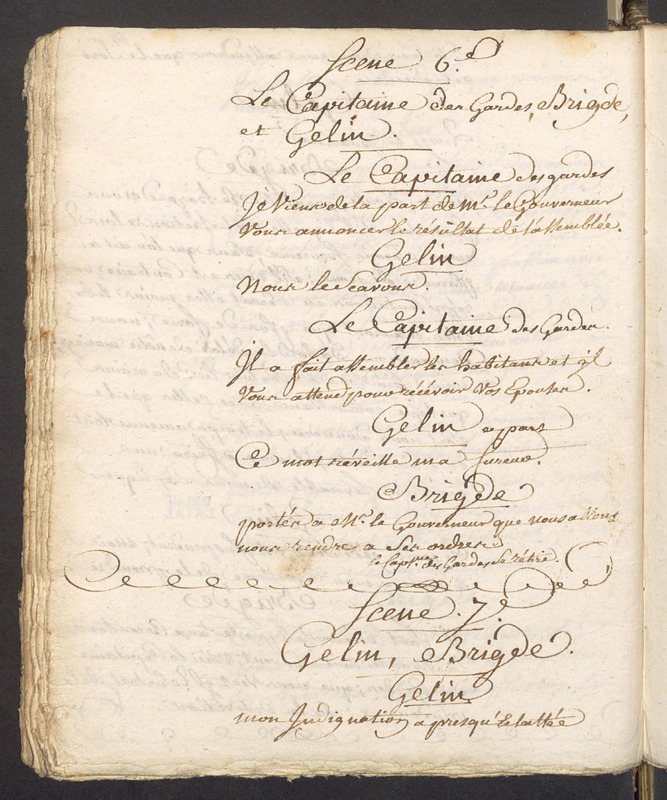 Scene 6.e
Le Capitaine des Gardes, Brigde,
et Gelin.
Le Capitaine des gardes
Je Viens de la part de Mr. le Gouverneur
Vous annoncer le résultat de l'assemblée.
Gelin
Nous le scavons.
Le Capitaine des Gardes.
Il a fait assembler les habitans et il
Vous attend pour récévoir vos Epouses.
Gelin a part
Ce mot réveille ma fureur.
Brigde
portés a Mr. le Gouverneur que nous allons
nous rendre a ses ordres.
le Capt.ne des Gardes se rétire.
Scene 7.e
Gelin, Brigde.
Gelin
mon Indignation a presqu'Eclattée